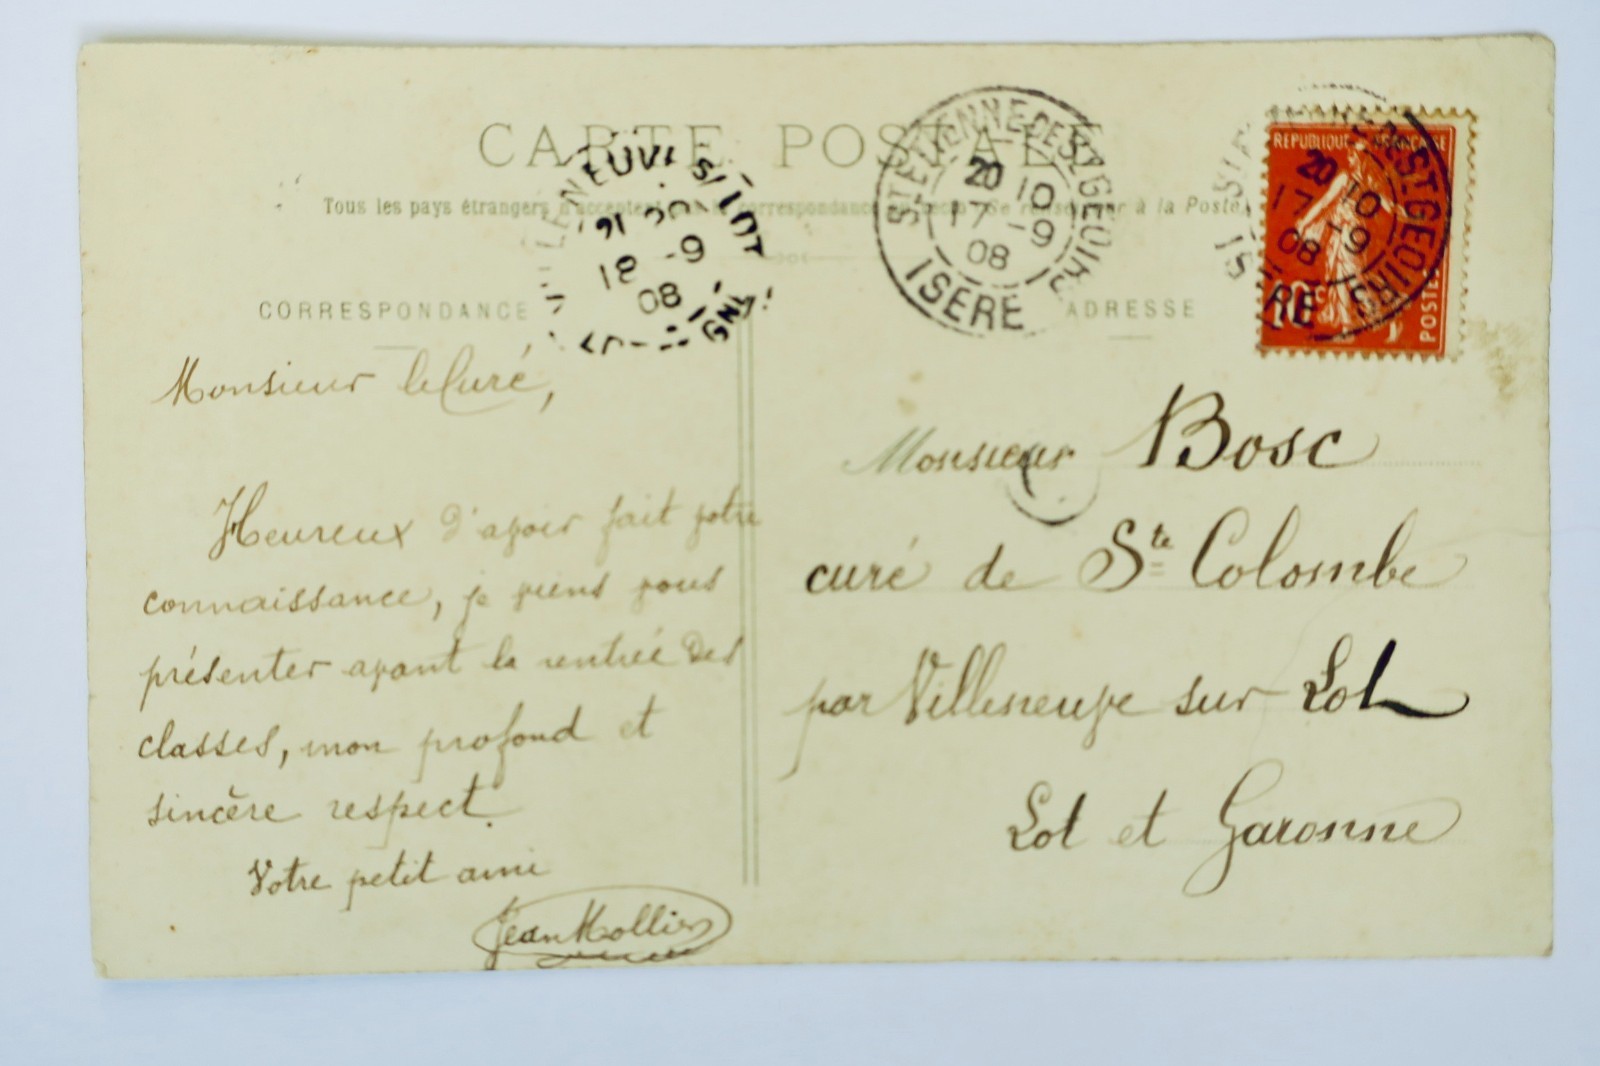 CARTE POSTALE
Tous les pays étrangers n'acceptent pas la correspondance au recto. Se renseigner à la Poste
CORRESPONDANCE
ADRESSE
VILLENEUVE S/ LOT
18 -9
08
ST ETIENNE DE ST GEOIRS
20 10
17 -9
08
ISERE
ST ETIENNE DE ST GEOIRS
20 10
17 -9
08
ISERE
REPUBLIQUE FRANÇAISE
10c
POSTES
Monsieur le Curé,
Heureux d'avoir fait votre
connaissance, je viens vous
présenter avant la rentrée des
classes, mon profond et
sincère respect.
Votre petit ami
Jean Mollier
Monsieur Bosc
curé de Ste Colombe
par Villeneuve sur Lot
Lot et Garonne